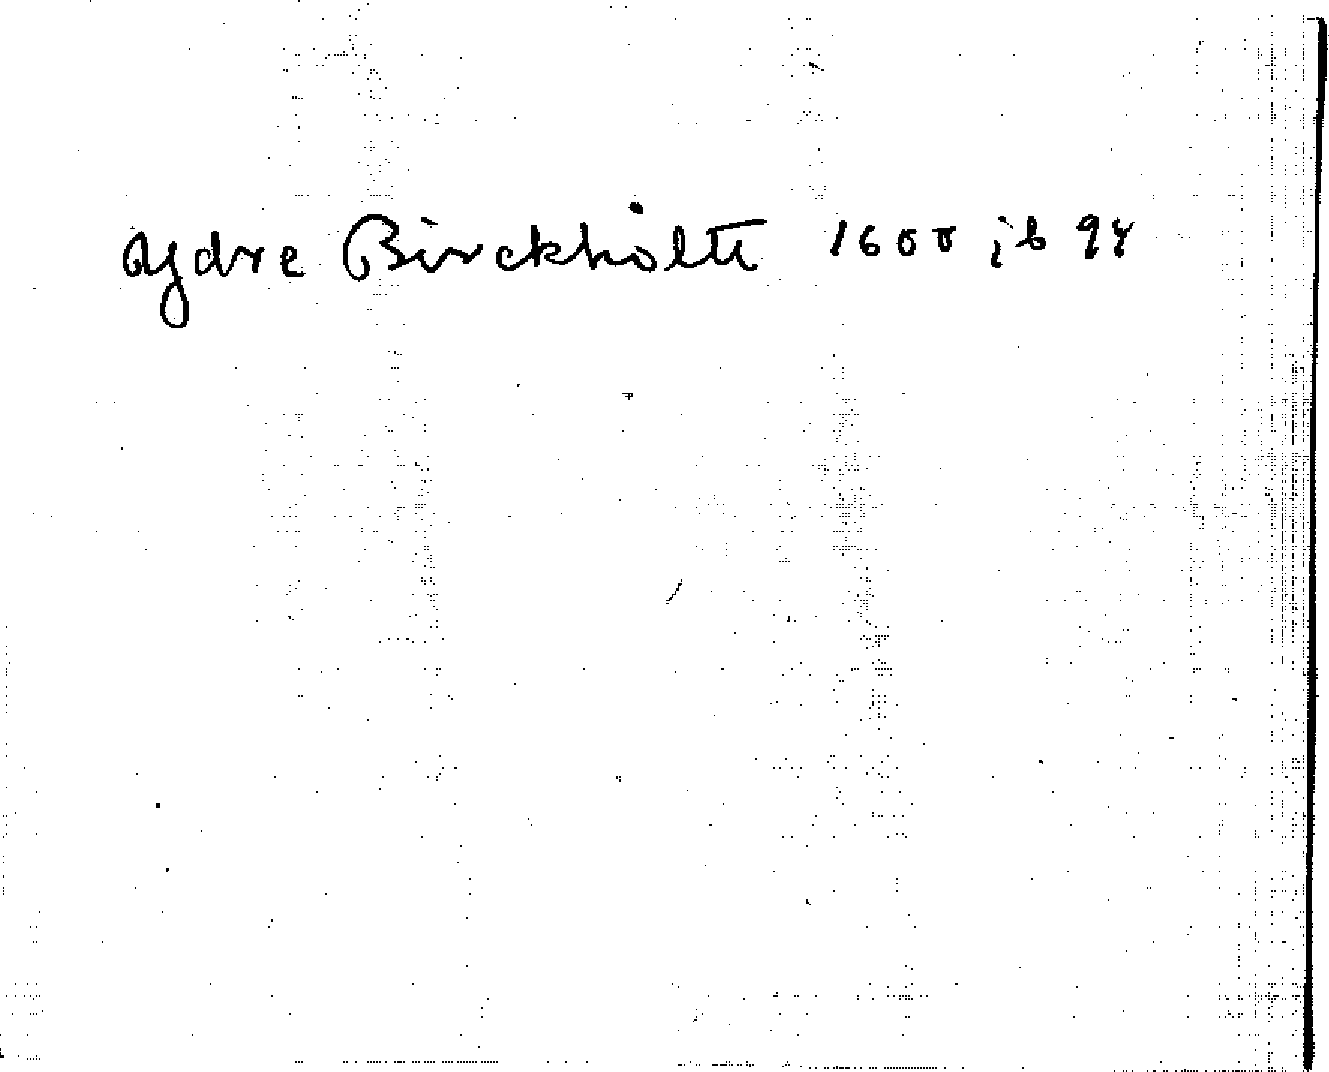 Ydre Birckholtt 1600 jb 94